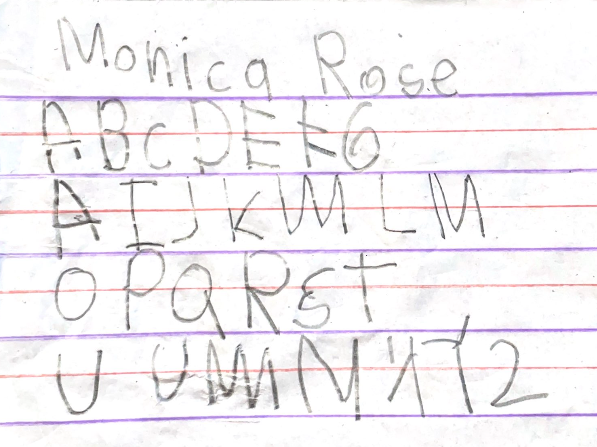 Monica Rose
ABCDEFG
AIJKMLM
OPQRST
U